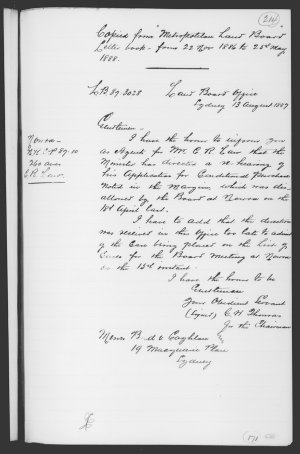 (214)
Copied from "Metropolitan Land Board
Letter book - from 22 Nov 1886 to 25th May
1888.
L.B 87.2028 Land Board Office
Sydney 13 August 1887
Gentlemen -
I have the honor to inform you
as Agents for Mr. C. R. Law that the
Minister has directed a re-hearing of
his Application for Conditional Purchase
Noted in the Margin, which was dis-
allowed by the Board at Nowra on the
April last.
Nowra -
87.10
260 acs
C R. Law.
I have to add that the direction
was received in this Office too late to admit
of the Case being placed on the List of
Cases for the Board Meeting at Nowra
on the instant.
I have the honor to be
Gentlemen
Your Obedient Servant
(signed) C H
for the Chairman
Messrs B. de V Coghlan
19 Macquarie Place
Sydney